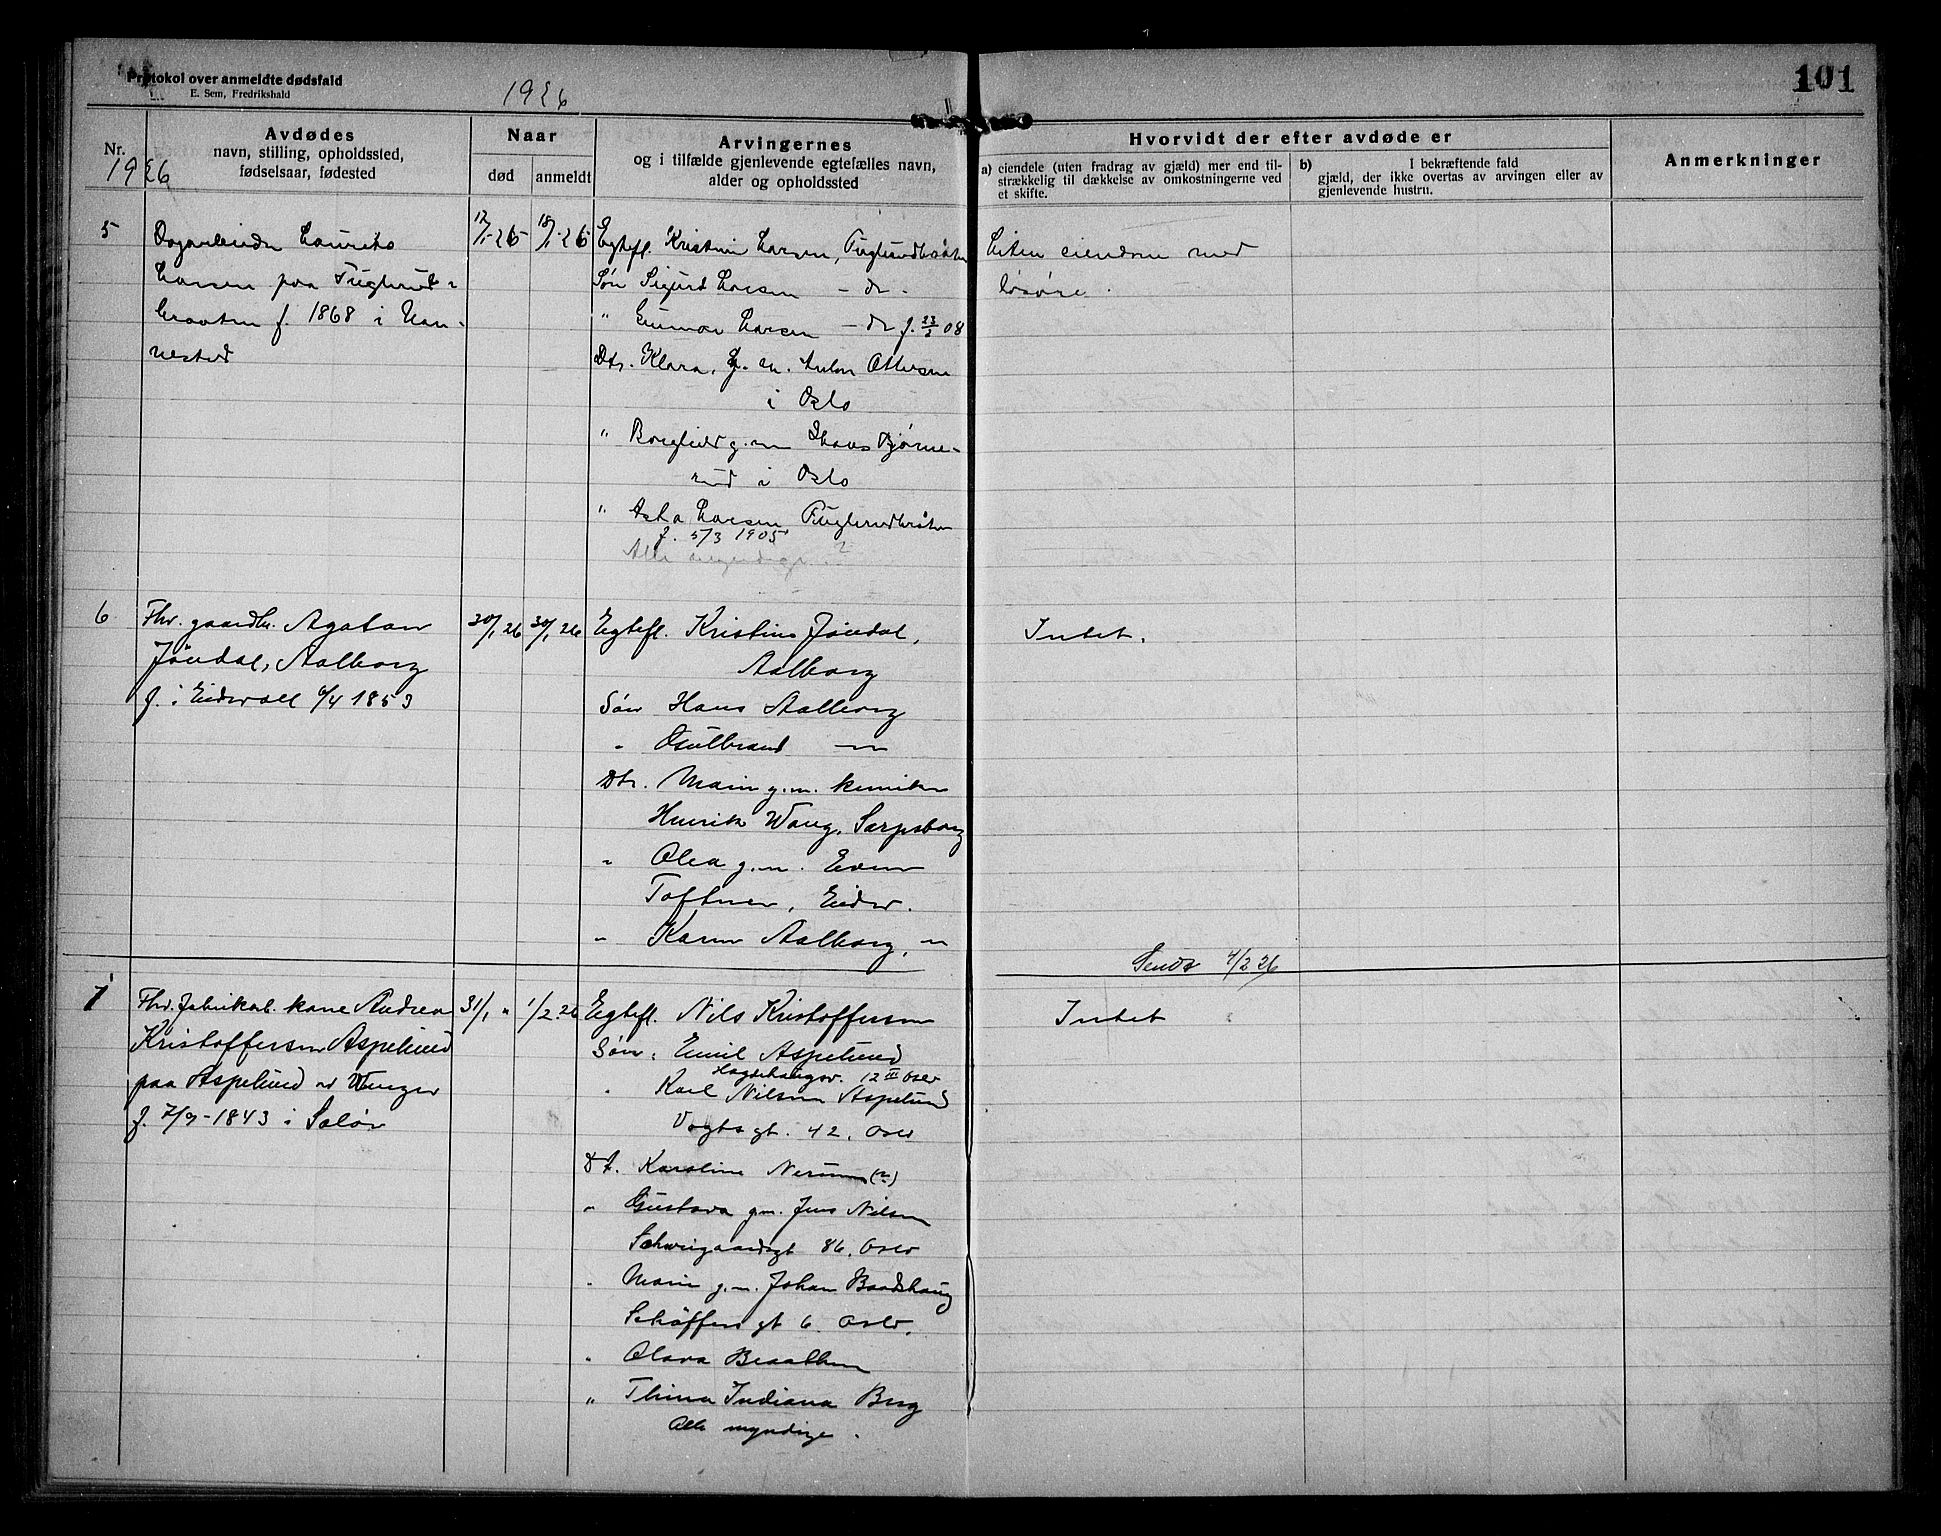 Protokol over anmeldte dødsfald
E. Sem, Fredrikshald
1926
101
Nr.
1926
Avdødes
navn, stilling, opholdssted,
fødselsaar, fødested
Naar
død
anmeldt
Arvingernes
og i tilfælde gjenlevende egtefælles navn,
alder og opholdssted
Hvorvidt der efter avdøde er
a) eiendele (uten fradrag av gjæld) mer end til-
strækkelig til dækkelse av omkostningerne ved
et skifte.
b) I bekræftende fald
gjæld, der ikke overtas av arvingen eller av
gjenlevende hustru.
Anmerkninger
5
Dagarbeider Laurits
Larsen paa Fuglerud-
braaten f. 1868 i Nan-
nestad
12/1-26
18/1-26
Egtefl. Kristine Larsen, Fuglerudbråten
Søn Sigurd Larsen - do -
" Gunnar Larsen - do f. 23/2 08
Dtr. Klara, g. m. Anton Ottersen
i Oslo
" Borghild g.m Hans Bjørne-
rud i Oslo
" Asta Larsen Fuglerudbråten
f. 5/3 1905
Alle myndige ?
Liten eiendom med
løsøre.
6
Fhv. gaardbr. Agaton
Jøndal, Aalborg
f. i Eidsvoll /4 1853
30/1 26
30/1 26
Egtefl. Kristine Jøndal,
Aalborg
Søn Hans Aalborg
" Gulbrand — " —
Dtr. Marie g.m. kemiker
Henrik Wang, Sarpsborg
" Olea g.m. Even
Toftner, Eidsv.
" Karen Aalborg, — " —
Intet.
Sendt 4/2 26
7
Fhv. fabrikarb. kone Andrea
Kristoffersen Aspelund
paa Aspelund v/ Venger
f. 7/9-1843 i Solør
31/1 "
1/2.26
Egtefl. Nils Kristoffersen
Søn: Emil Aspelund
Hagdehaugsv. 12 III Oslo
" Karl Nilsen Aspelund
Vogts gt. 42, Oslo
Dt. Karoline Nersum (?)
" Gustava g.m. Jens Nilsen
Schweigaardsgt 86, Oslo
" Marie g.m. Johan Baadshaug
Schøffers gt 6. Oslo,
" Olava Braathen
" Thina Indiana Berg
Alle myndige.
Intet